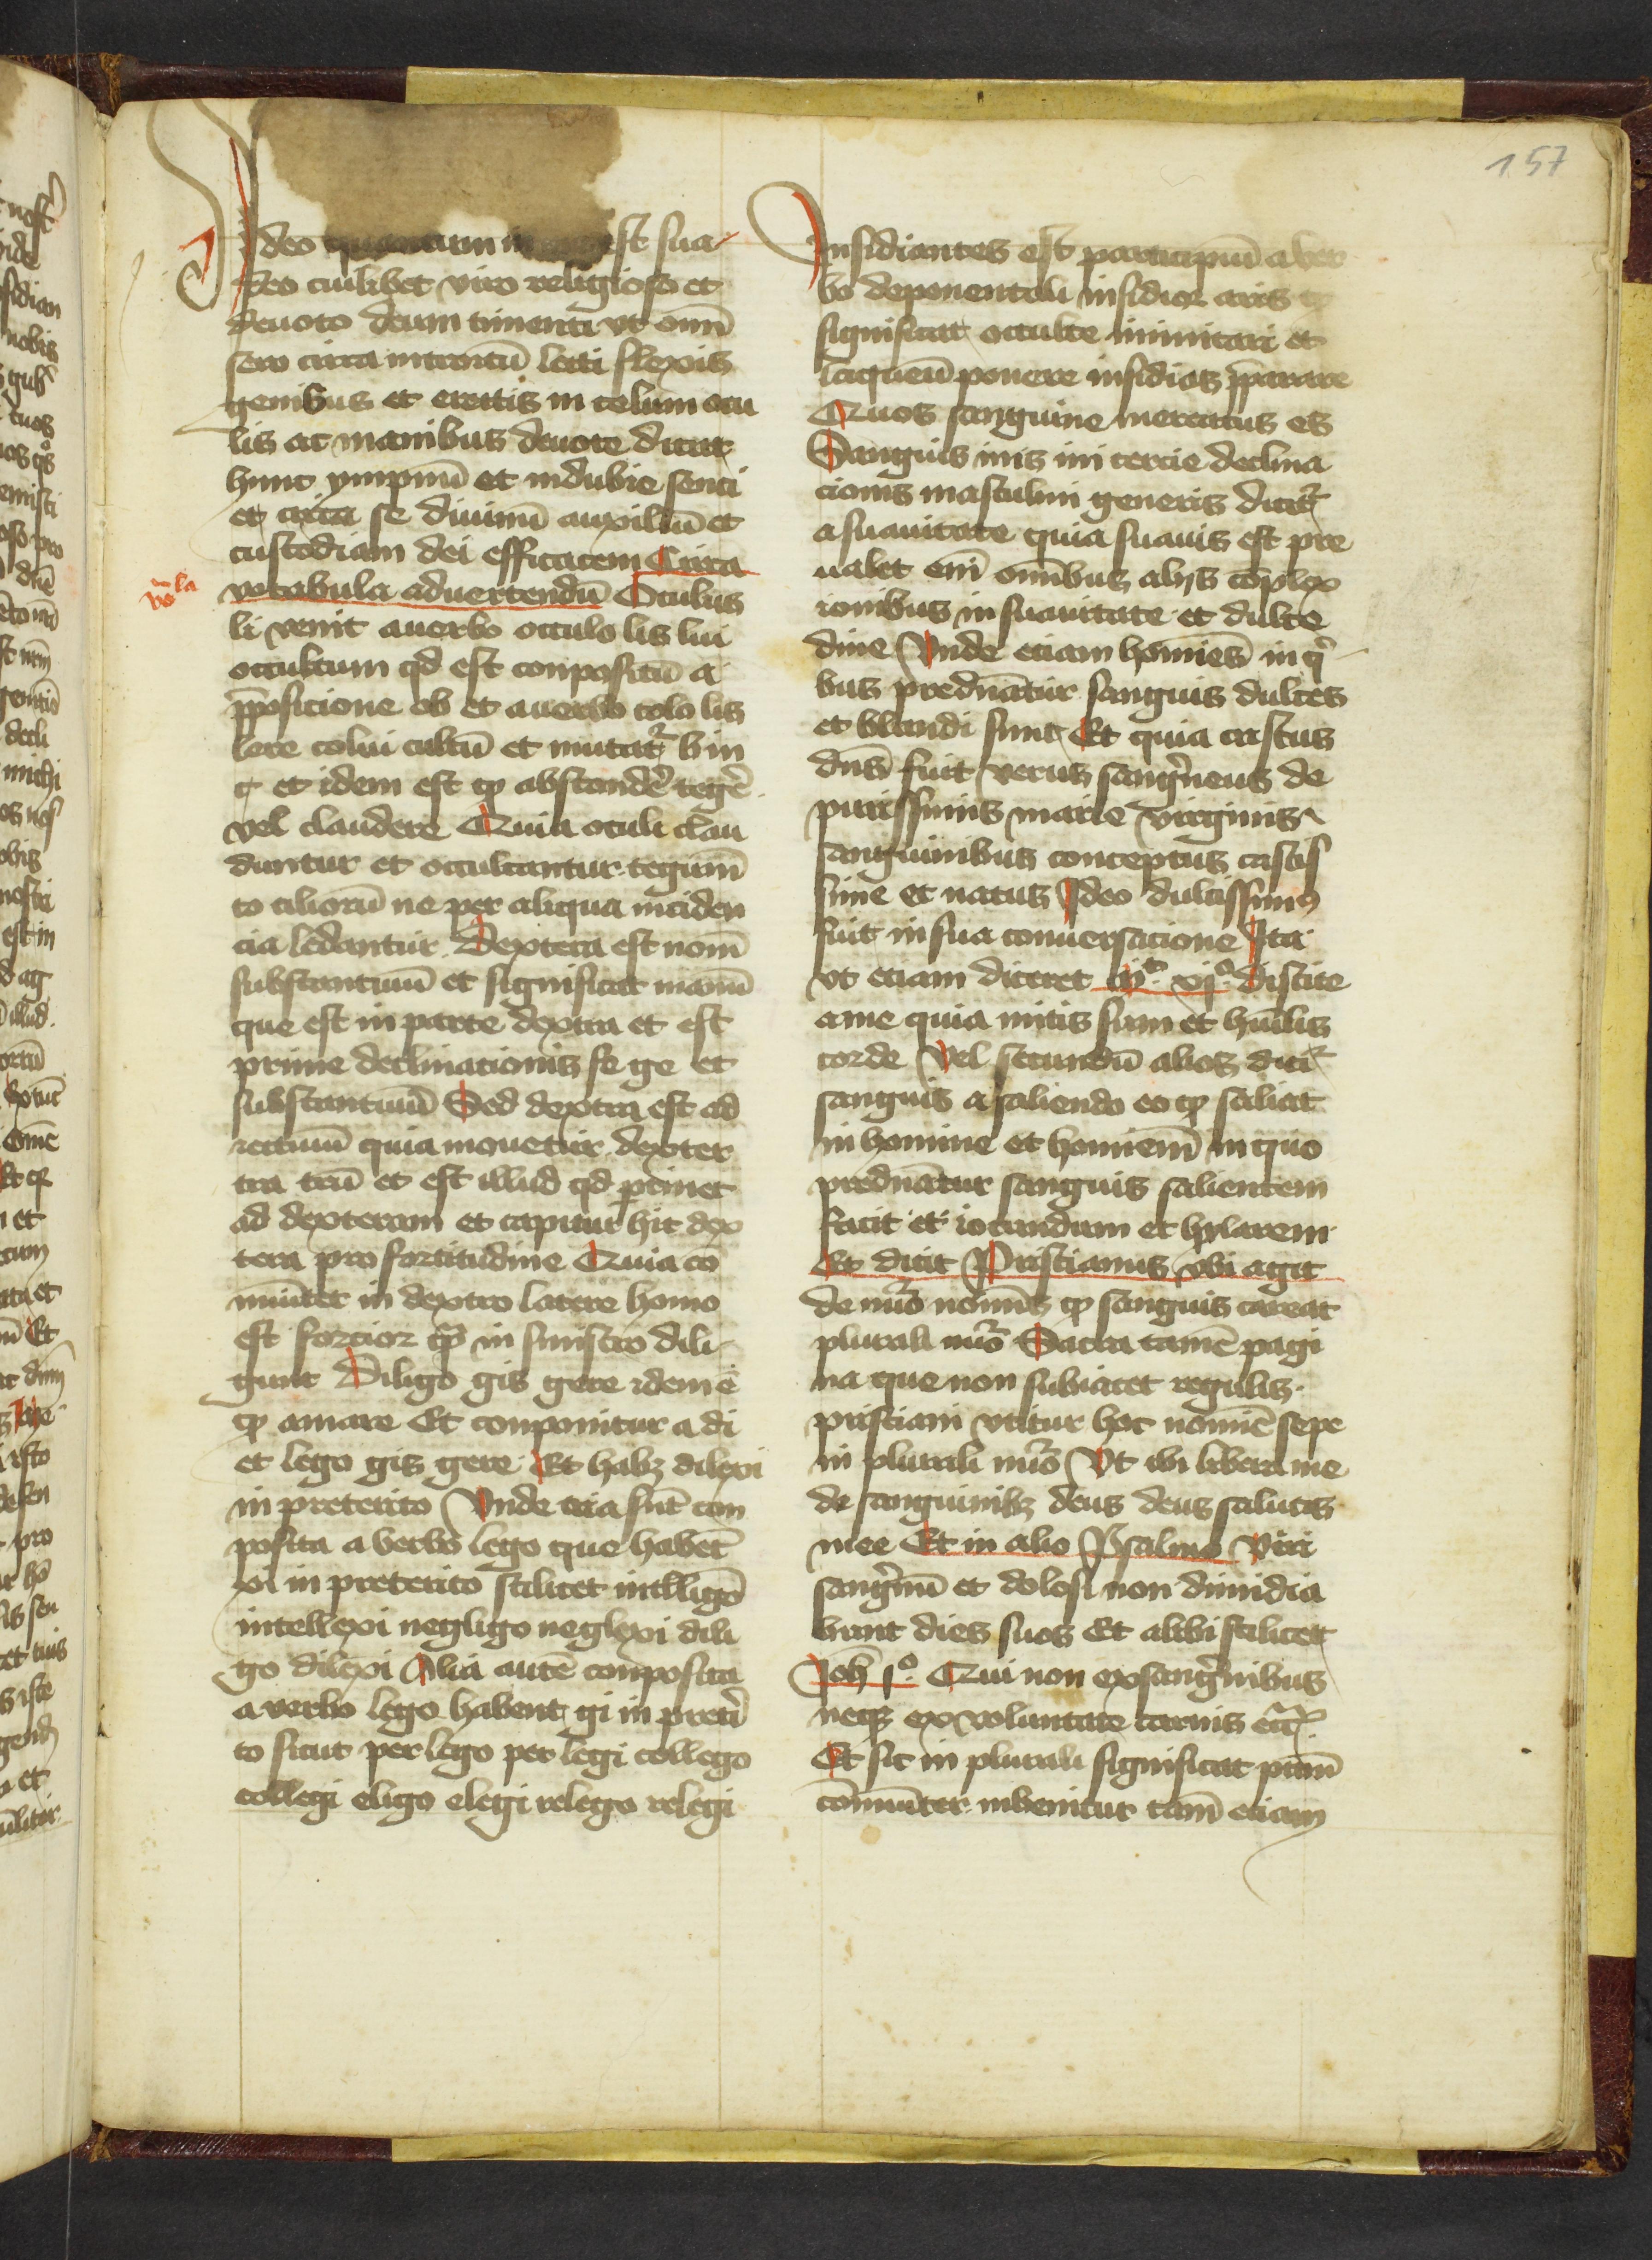 157
Ideo quantum in me est sua
deo cuilibet viro religioso et
deuoto deum timenti vt omni
sero circa introitū lecti flexis
genibus et erectis in celum ocu
lis ac manibus deuote dicat
hunc ympnū et indubie senci
et circa se diuinū auxiliū et
custodiam dei efficacem Circa
vocabula aduertendū Oculus
voᵃla
li venit a uerbo occulo lis lui
occultum qd est conpositū a
p̄posicione ob et a uerbo colo lis
lere colui cultū et mutat᷑ b in
c et idem est qp abscondē tegē
vel claudere Quia oculi clau
duntur et occultantur tegum̄
to ciliorū ne per aliqua inciden
cia ledantur Dextera est nom̄
substantiuū et significat manū
que est in parte dextra et est
prime declinacionis se ge et
substantiuū Sed dextra est ad
iectiuū quia mouetur dexter
tra trū et est illud qd ptinet
ad dexteram et capitur hic dex
tera pro fortitudine Quia cō
muniter in dextro latere homo
est forcior qp̄ in sinistro dili
gunt Diligo gis gere idem ē
qp amare Et componitur a di
et lego gis gere Et habꝫ dilexi
in preterito Vnde tria sūt com
posita a verbo lego que habēt
xi in preterito scilicet intelligo
intellexi negligo neglexi dili
go dilexi Alia autē composita
a verbo lego habent gi in preti
to sicut perlego perlegi collego
collegi eligo elegi relego relegi
Insidiantes est participiū a ver
bo deponentali insidior aris qp
significat occulte inimicari et
laqueū ponere insidias p̄parare
Quos sanguine mercatus es
Sanguis inis ini tercie declina
cionis masculini generis dicit᷑
a suauitate quia suauis est pre
ualet em̄ omībus alijs cōplex
ionibus in suauitate et dulce
dine Vnde eciam homies in qⁱ
bus prednatur sanguis dulces
et blandi sunt Et quia castus
dns fuit verus sangⁱneus de
purissimis marie virginis
sanguinibus conceptus castis
sime et natus Ideo dulcissimꝰ
fuit in sua conuersacione Ita
vt eciam diceret mtͭ. xjº. discite
a me quia mitis sum et humilis
corde Vel secundū alios dicit᷑
sanguis a saliendo eo qp saliat
in homine et homiem̄ in quo
prednatur sanguis salientem
facit et iocundum et hylarem
Et dicit Priscianus vbi agit
de nuō nominis qp sanguis careat
plurali nuō Sacra tamē pagi
na que non subiacet regulis
prisciani vtitur hoc nomiē sepe
in plurali nuō Vt ibi libera me
de sanguinibꝫ deus deus salutis
mee Et in alio Psalmo Viri
sangⁱnū et dolosi non dimidia
bunt dies suos Et alibi scilicet
Joh̄ jº. Qui non ex sangⁱnibus
neqꝫ ex voluntate carnis etc̄
Et sic in plurali significat pctm̄
cōmuniter inuenitur tam̄ eciam